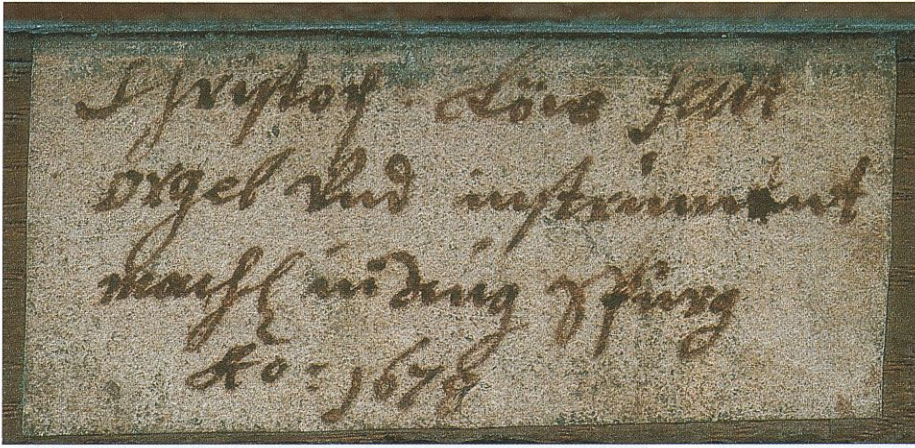 Christof. Löw fecit
orgel Und instrument
macher in
Ao: 1678